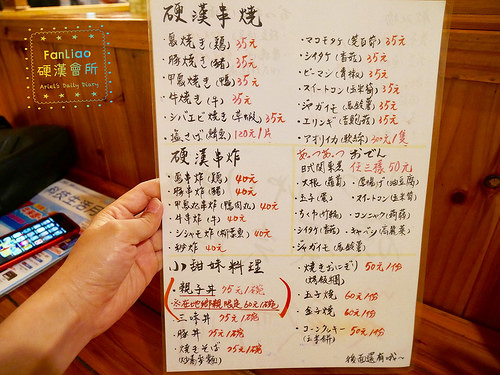 FanLiao
硬漢會所
Ariel's Daily Diary
硬漢串燒
・鳥燒き(鶏) 35元
・豚燒き(豬) 35元
・甲鳥燒き(鴨) 35元
・牛燒き(牛) 35元
・シバエビ燒き(草蝦) 35元
・塩さば(鯖魚) 120元1片
・マコモタケ(茭白筍) 35元
・シイタケ(香菇) 35元
・ピーマン(青椒) 35元
・スイートコン(玉米筍) 35元
・ジャガイモ(馬鈴薯) 35元
・エリンギ(杏鮑菇) 35元
・アオリイカ(軟絲) 300元1隻
硬漢串炸
・鳥串炸(鶏) 40元
・豚串炸(豬) 40元
・甲鳥丸串炸(鴨肉丸) 40元
・牛串炸(牛) 40元
・シシャモ炸(柳葉魚) 40元
炸 40元
あつあつ おでん
日式関東煮 任三樣50元
・大根(蘿蔔)
・厚揚げ(油豆腐)
・玉子(蛋)
・スイートコン(玉米筍)
・ちくわ(竹輪)
・コンニャク(蒟蒻)
・シイタケ(香菇)
・キャベツ(高麗菜)
・ジャガイモ(馬鈴薯)
小甜味料理
・親子丼 75元1碗
60元1碗
・三味丼 75元1碗
・豚丼 75元1碗
・燒きそば 75元1碗
(炒蕎麥麵)
・燒きおにぎり 50元1份
(烤飯糰)
・玉子燒 60元1份
・金子燒 60元1份
・コーンクルキー 50元1份
(玉米餅)
後面還有哦~